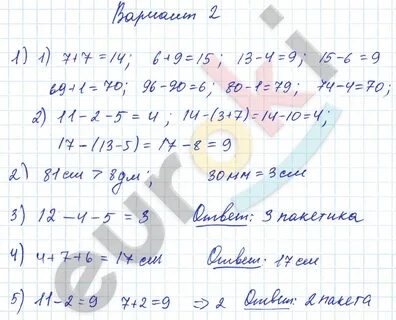 Вариант 2
1) 1) 7+7=14; 6+9=15; 13-4=9; 15-6=9
69+1=70; 96-90=6; 80-1=79; 74-4=70;
2) 11-2-5=4; 14-(3+7)=14-10=4;
17-(13-5)=17-8=9
2) 81см > 8дм; 30мм=3см
3) 12-4-5=3 Ответ: 3 пакетика
4) 4+7+6=17см Ответ: 17см
5) 11-2=9 7+2=9 ⇒ 2 Ответ: 2 пакета
euroki